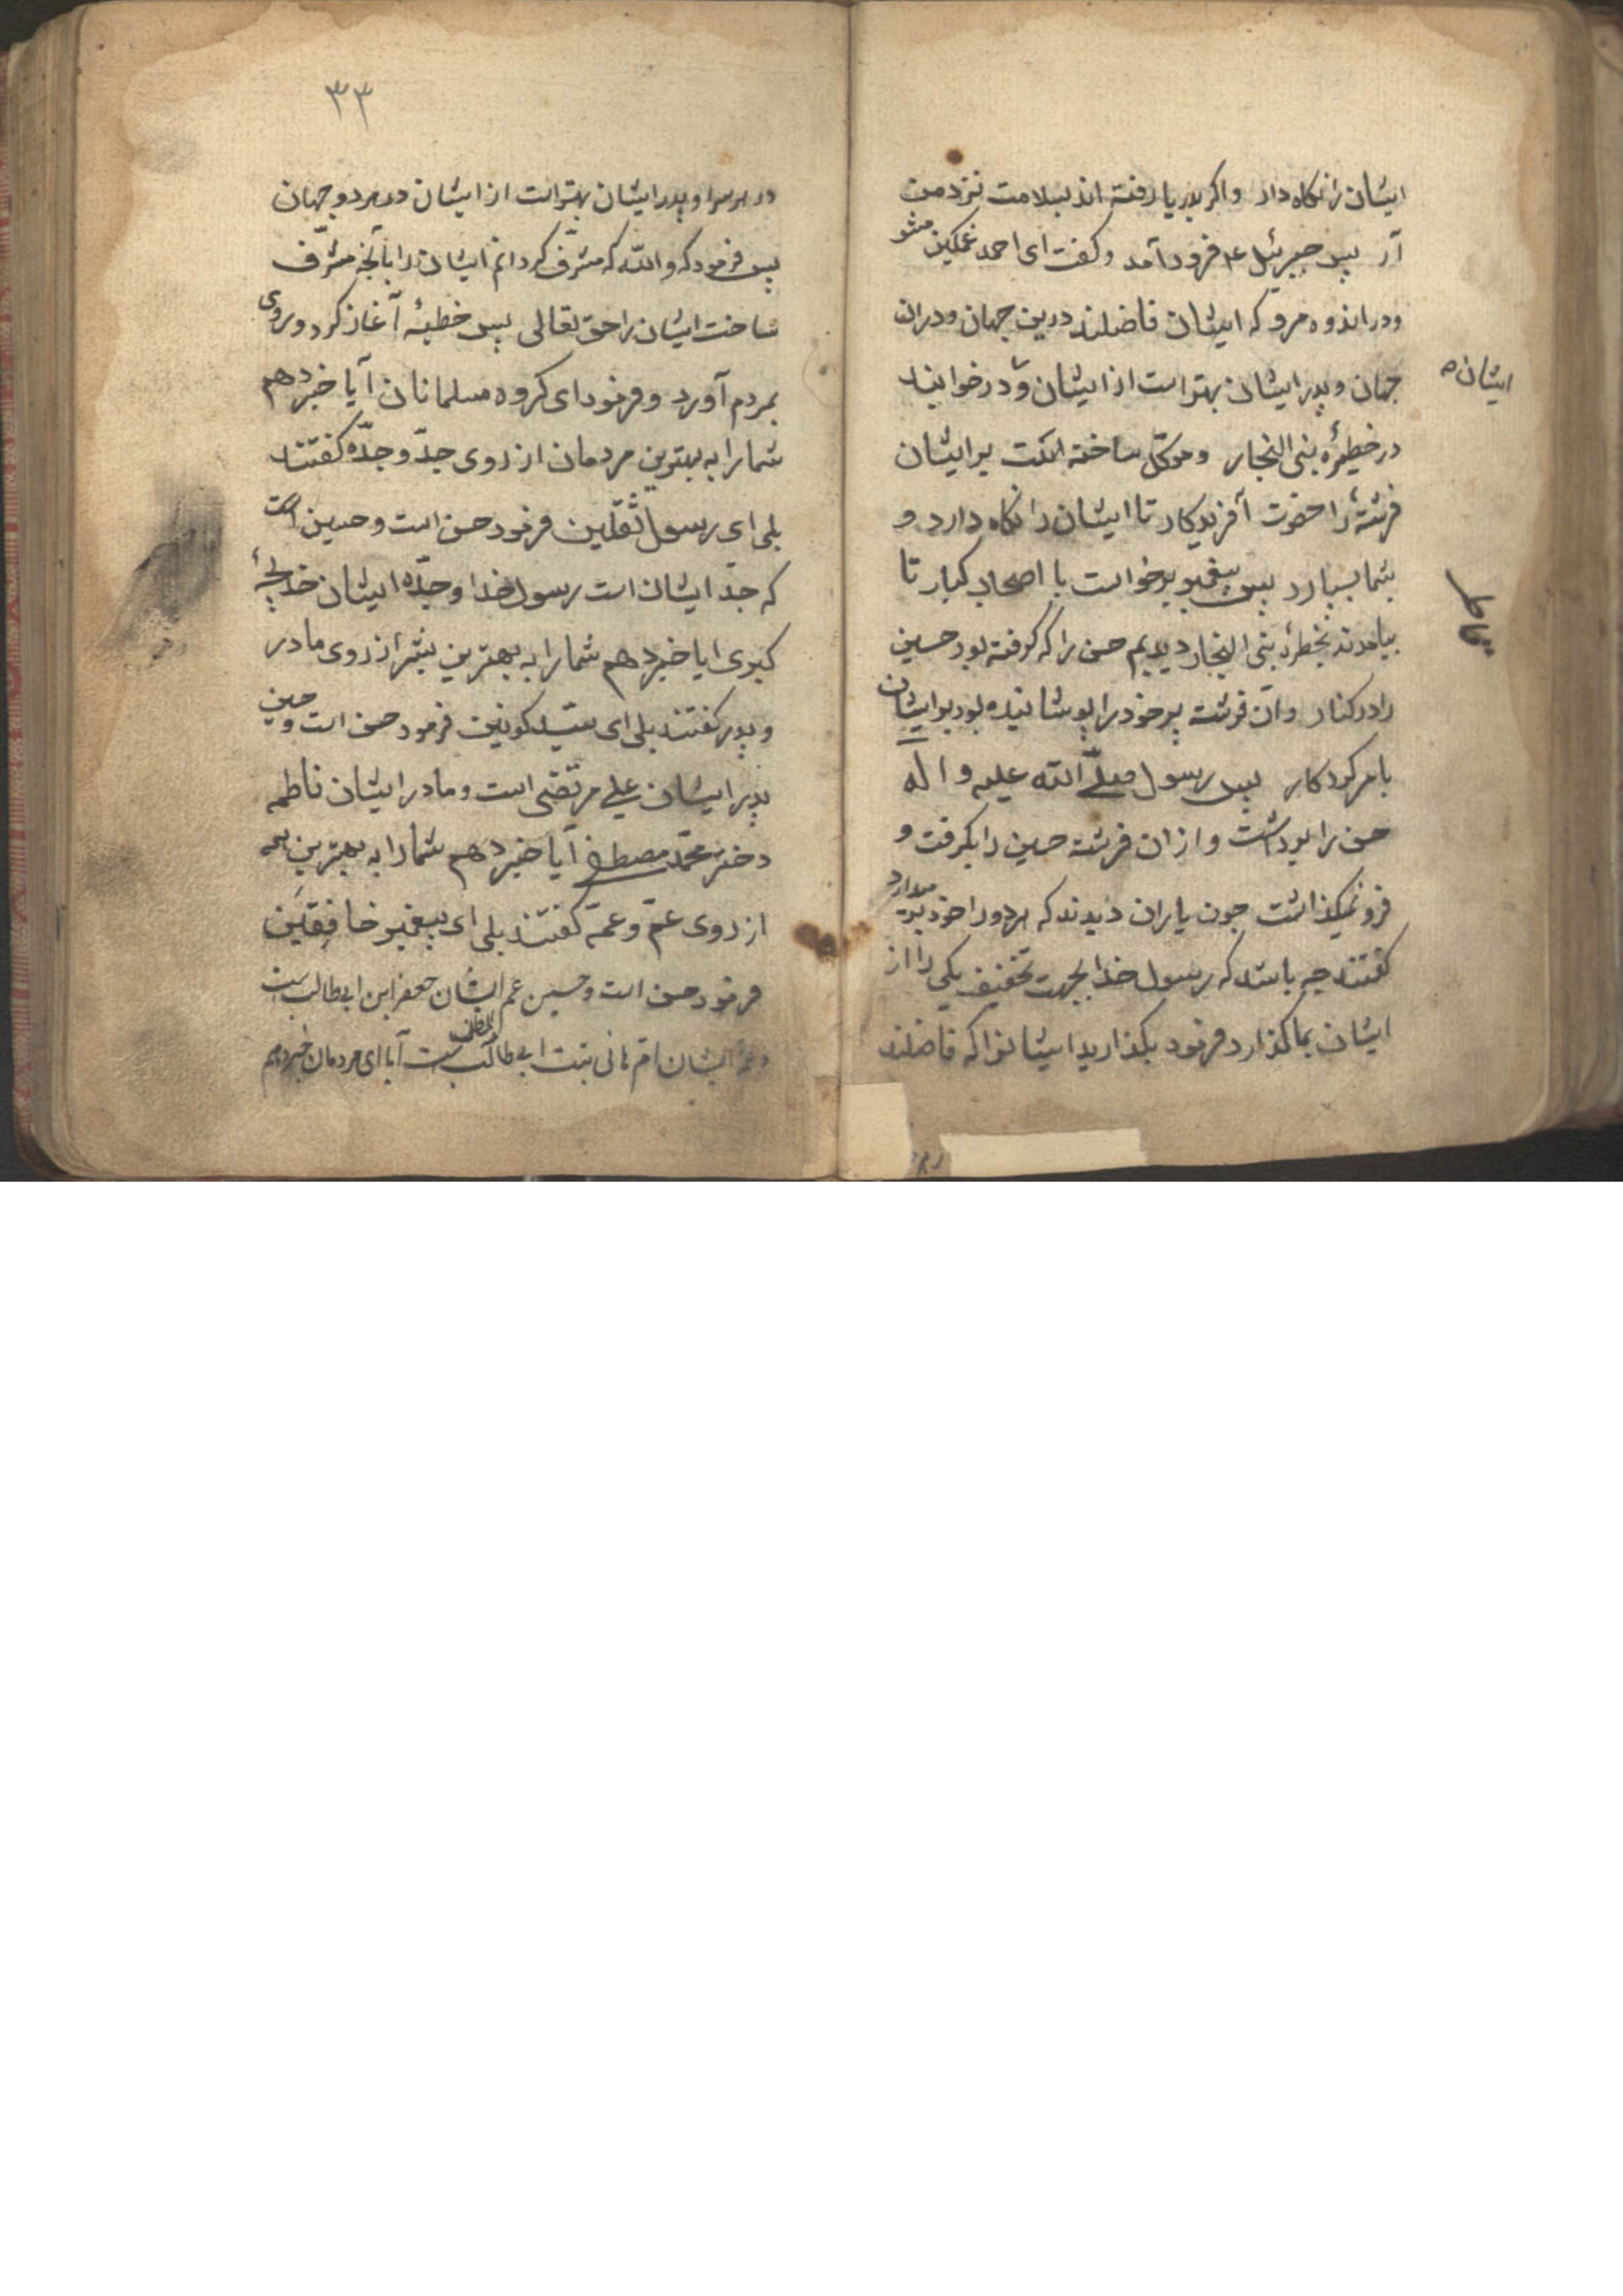 ایشان را نکاه دار واکر بدریا رفته اند بسلامت نزد من
آر پس جبرئیل ع فرود آمد وکفت ای احمد غمکین مشو
ودر اندوه مرو که ایشان فاضلند درین جهان ودران
جهان وپدر ایشان بهتر است از ایشان و در خوابند
ایشان
در خطیرهٔ بنی النجار وموکل ساخته است بر ایشان
فرشتهٔ را حضرت آفریدکار تا ایشان را نکاه دارد و
بشما بسپارد پس پیغمبر برخواست با اصحاب کبار تا
بیامدند بخطرهٔ بنی النجار دیدیم حسن را که کرفته بود حسین
را در کنار وآن فرشته پر خود را پوشانیده بود بر ایشان
بامر کردکار پس رسول صلی الله علیه واله
حسن را برداشت و از ان فرشته حسین را بکرفت و
فرو نمیکذاشت چون یاران دیدند که هر دو را خود بر میدارد
کفتند چه باشد که رسول خدا بجهت تخفیف یکی را از
ایشان بما کذارد فرمود بکذارید ایشانرا که فاضلند
٣٣
در هر سرا وپدر ایشان بهتر است از ایشان در هر دو جهان
پس فرمود که والله که مشرّف کردانم ایشان را بآنچه مشرّف
ساخت ایشان را حق تعالی پس خطبهٔ آغاز کرد وروی
بمردم آورد وفرمود ای کروه مسلمانان آیا خبر دهم
شما را به بهترین مردمان از روی جدّ و جدّه کفتند
بلی ای رسول ثقلین فرمود حسن است وحسین است
که جدّ ایشان است رسول خدا وجدّه ایشان خدیجهٔ
کبری ایا خبر دهم شما را به بهترین بشر از روی مادر
و پدر کفتند بلی ای سیّد کونین فرمود حسن است وحسین
پدر ایشان علی مرتضی است ومادر ایشان فاطمه
دختر محمّد مصطفی آیا خبر دهم شما را به بهترین همه
از روی عمّ وعمّه کفتند بلی ای پیغمبر خافقین
فرمود حسن است وحسین عم ایشان جعفر ابن ابی طالب است
وعمه ایشان امّ هانی بنت ابی طالب است آیا ای مردمان خبر دهم